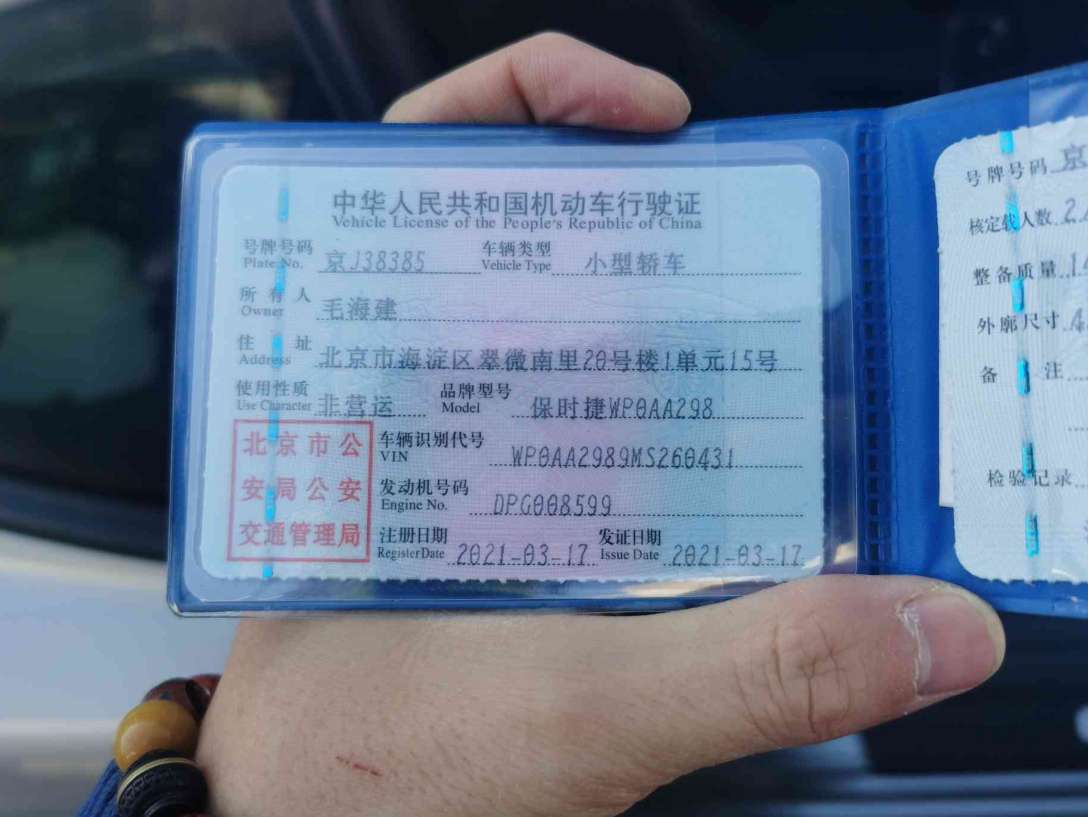 中华人民共和国机动车行驶证
Vehicle License of the People's Republic of China
号牌号码 京J38385 车辆类型 小型轿车
Plate No. Vehicle Type
所有人 毛海建
Owner
住址 北京市海淀区翠微南里20号楼1单元15号
Address
使用性质 非营运 品牌型号 保时捷WP0AA298
Use Character Model
北京市公
安局公安
交通管理局
车辆识别代号 WP0AA2989MS260431
VIN
发动机号码 DPG008599
Engine No.
注册日期 2021-03-17 发证日期 2021-03-17
Register Date Issue Date
号牌号码 京
核定载人数 2
整备质量
外廓尺寸
备注
检验记录